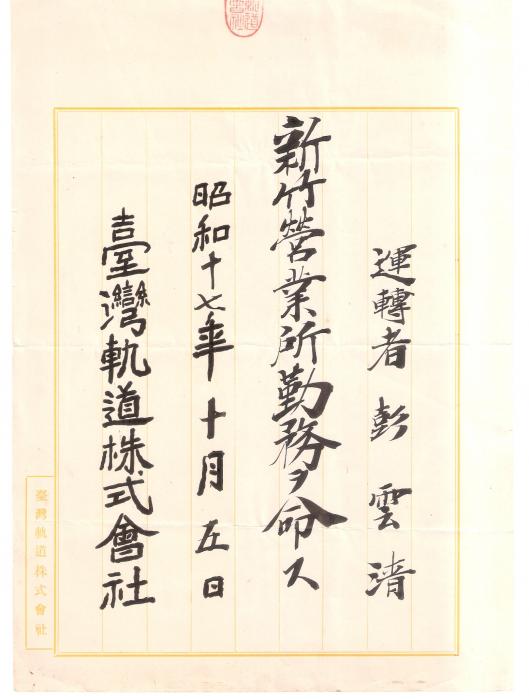 運轉者 彭雲清
新竹營業所勤務ヲ命ス
昭和十七年十月五日
臺灣軌道株式會社
臺灣軌道株式會社